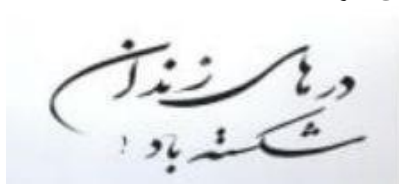 درهای زندان
شکسته باد!